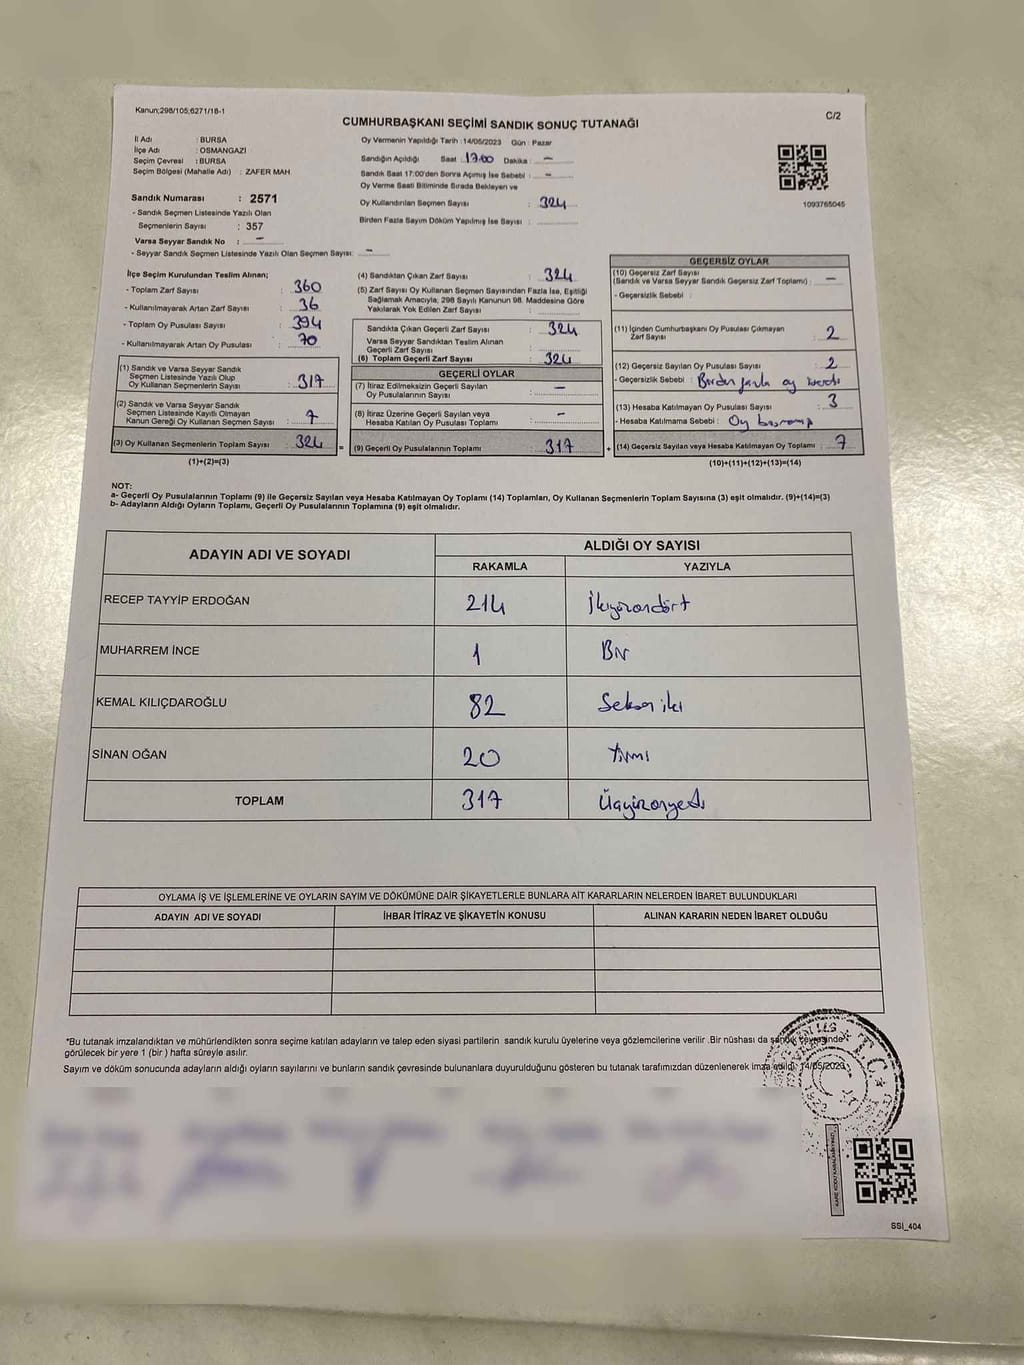 Kanun;298/105;6271/18-1
C/2
CUMHURBAŞKANI SEÇİMİ SANDIK SONUÇ TUTANAĞI
İl Adı : BURSA
İlçe Adı : OSMANGAZİ
Seçim Çevresi : BURSA
Seçim Bölgesi (Mahalle Adı) : ZAFER MAH.
Sandık Numarası : 2571
- Sandık Seçmen Listesinde Yazılı Olan
Seçmenlerin Sayısı : 357
Varsa Seyyar Sandık No : -
- Seyyar Sandık Seçmen Listesinde Yazılı Olan Seçmen Sayısı: -
Oy Vermenin Yapıldığı Tarih :14/05/2023 Gün : Pazar
Sandığın Açıldığı Saat 17:00 Dakika : -
Sandık Saat 17:00'den Sonra Açımış İse Sebebi : -
Oy Verme Saati Bitiminde Sırada Bekleyen ve
Oy Kullandırılan Seçmen Sayısı : 324
Birden Fazla Sayım Döküm Yapılmış İse Sayısı :
1093765045
İlçe Seçim Kurulundan Teslim Alınan;
- Toplam Zarf Sayısı : 360
- Kullanılmayarak Artan Zarf Sayısı : 36
- Toplam Oy Pusulası Sayısı : 394
- Kullanılmayarak Artan Oy Pusulası : 70
(1) Sandık ve Varsa Seyyar Sandık
Seçmen Listesinde Yazılı Olup
Oy Kullanan Seçmenlerin Sayısı : 317
(2) Sandık ve Varsa Seyyar Sandık
Seçmen Listesinde Kayıtlı Olmayan
Kanun Gereği Oy Kullanan Seçmen Sayısı : 7
(3) Oy Kullanan Seçmenlerin Toplam Sayısı : 324
(1)+(2)=(3)
(4) Sandıktan Çıkan Zarf Sayısı : 324
(5) Zarf Sayısı Oy Kullanan Seçmen Sayısından Fazla İse, Eşitliği
Sağlamak Amacıyla; 298 Sayılı Kanunun 98. Maddesine Göre
Yakılarak Yok Edilen Zarf Sayısı :
Sandıkta Çıkan Geçerli Zarf Sayısı : 324
Varsa Seyyar Sandıktan Teslim Alınan
Geçerli Zarf Sayısı :
(6) Toplam Geçerli Zarf Sayısı : 324
GEÇERLİ OYLAR
(7) İtiraz Edilmeksizin Geçerli Sayılan
Oy Pusulasının Sayısı : -
(8) İtiraz Üzerine Geçerli Sayılan veya
Hesaba Katılan Oy Pusulası Toplamı : -
= (9) Geçerli Oy Pusulalarının Toplamı : 317
GEÇERSİZ OYLAR
(10) Geçersiz Zarf Sayısı
(Sandık ve Varsa Seyyar Sandık Geçersiz Zarf Toplamı) : -
- Geçersizlik Sebebi :
(11) İçinden Cumhurbaşkanı Oy Pusulası Çıkmayan
Zarf Sayısı : 2
(12) Geçersiz Sayılan Oy Pusulası Sayısı : 2
- Geçersizlik Sebebi : Birden fazla oy
(13) Hesaba Katılmayan Oy Pusulası Sayısı : 3
- Hesaba Katılmama Sebebi : Oy
+ (14) Geçersiz Sayılan veya Hesaba Katılmayan Oy Toplamı : 7
(10)+(11)+(12)+(13)=(14)
NOT:
a- Geçerli Oy Pusulalarının Toplamı (9) ile Geçersiz Sayılan veya Hesaba Katılmayan Oy Toplamı (14) Toplamları, Oy Kullanan Seçmenlerin Toplam Sayısına (3) eşit olmalıdır. (9)+(14)=(3)
b- Adayların Aldığı Oyların Toplamı, Geçerli Oy Pusulalarının Toplamına (9) eşit olmalıdır.
ADAYIN ADI VE SOYADI
ALDIĞI OY SAYISI
RAKAMLA YAZIYLA
RECEP TAYYİP ERDOĞAN 214 İkiyüzondört
MUHARREM İNCE 1 Bir
KEMAL KILIÇDAROĞLU 82 Seksen iki
SİNAN OĞAN 20 Yirmi
TOPLAM 317 Üçyüzonyedi
OYLAMA İŞ VE İŞLEMLERİNE VE OYLARIN SAYIM VE DÖKÜMÜNE DAİR ŞİKAYETLERLE BUNLARA AİT KARARLARIN NELERDEN İBARET BULUNDUKLARI
ADAYIN ADI VE SOYADI İHBAR İTİRAZ VE ŞİKAYETİN KONUSU ALINAN KARARIN NEDEN İBARET OLDUĞU
*Bu tutanak imzalandıktan ve mühürlendikten sonra seçime katılan adayların ve talep eden siyasi partilerin sandık kurulu üyelerine veya gözlemcilerine verilir .Bir nüshası da sandık çevresinde
görülecek bir yere 1 (bir ) hafta süreyle asılır.
Sayım ve döküm sonucunda adayların aldığı oyların sayılarını ve bunların sandık çevresinde bulunanlara duyurulduğunu gösteren bu tutanak tarafımızdan düzenlenerek imza edildi. 14/05/2023
T.C.
SSİ_404